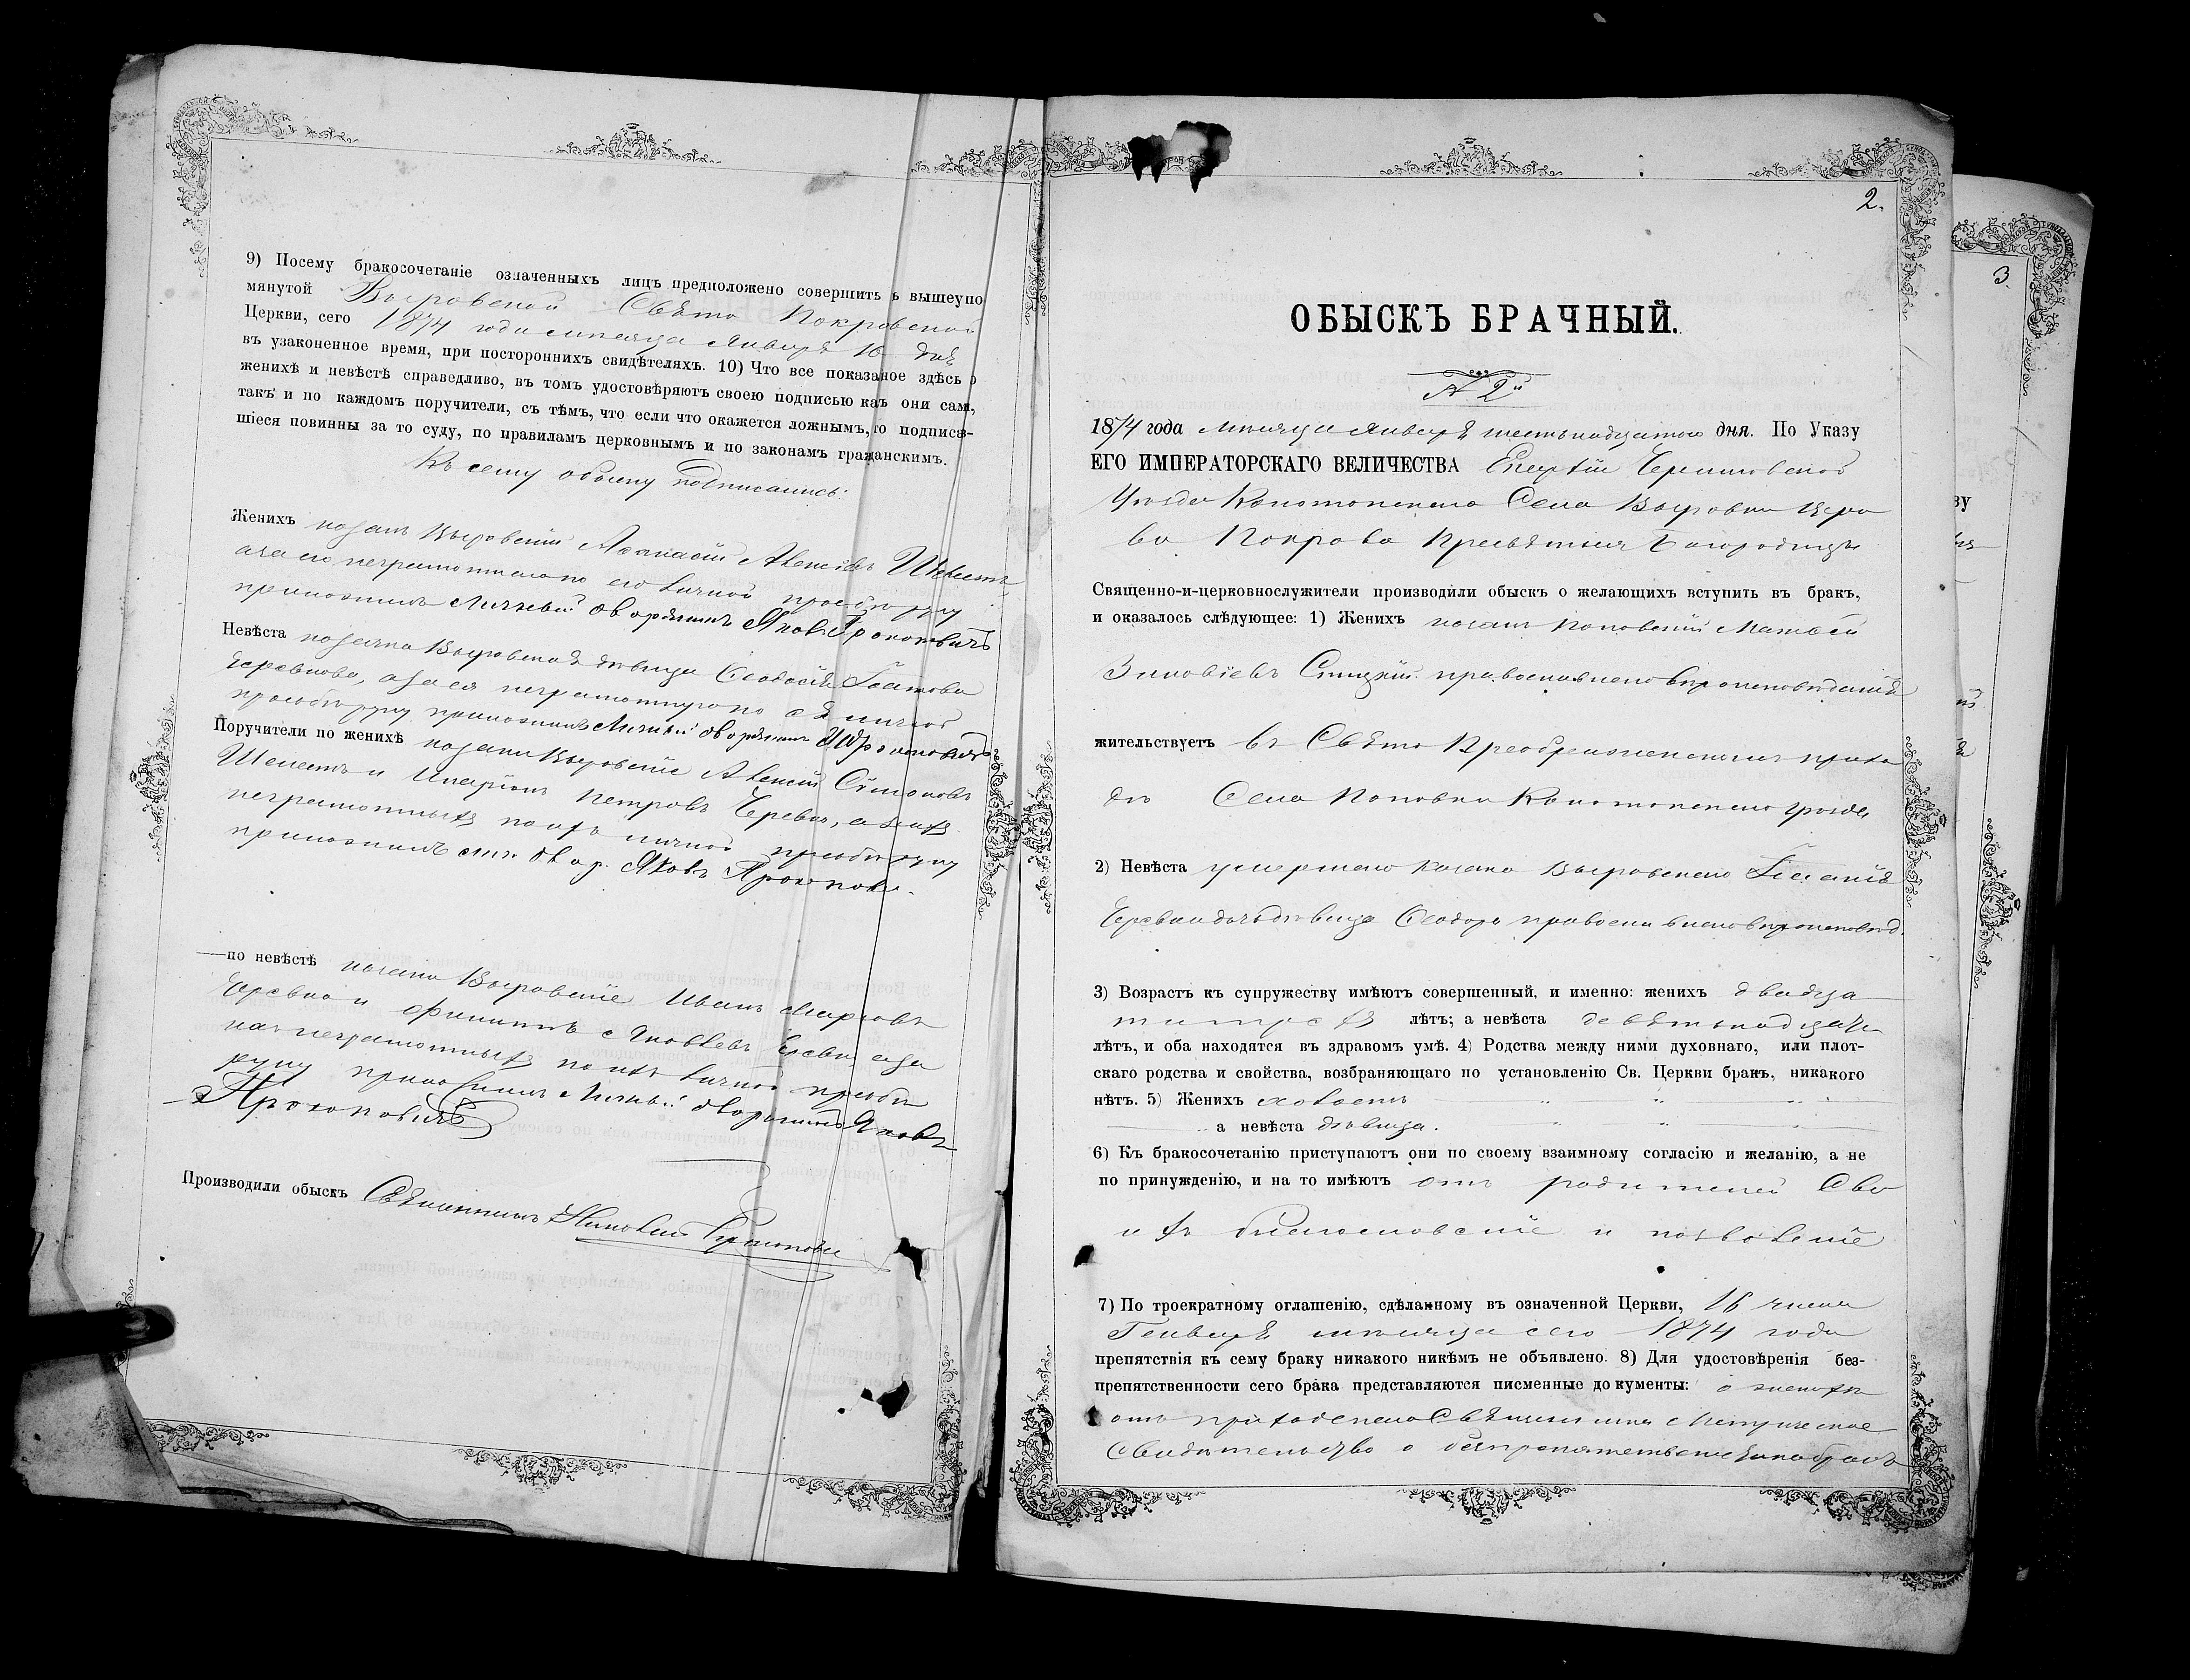 9) Посему бракосочетаніе означенныхъ лицъ предположено совершить ъ вышеупо
мянутой Выровской Свято Покровской
Церкви, сего 1874 года мѣсяца Январѧ 16 дня
въ узаконенное время, при постороннихъ свидѣтеляхъ. 10) Что все показаное здѣсь о
женихѣ и невѣстѣ справедливо, въ томъ удостовѣряютъ своею подписью каъ они сами,
такъ и по каждомъ поручители, съ тѣмъ, что если что окажется ложнымъ, то подписав-
шіеся повинны за то суду, по правиламъ церковнымъ и по законамъ гражданскимъ.
Къ сему обыску подписались:
Женихъ козакъ Выровскій Афанасій Алексіевъ Шелестъ
а за его неграмотнаго по его личной просьбѣ руку
приложилъ Личный дворянинъ Яковъ Прокоповичъ
Невѣста козачка Выровская дѣвица Феодосія
Черевкова, а за ея неграмотную по ея личной
просьбѣ руку приложилъ Личный дворянинъ Я Прокоповичъ
Поручители по женихѣ козаки Выровскіе Алексій Симоновъ
Шелестъ и Иларіонъ Петровъ Черевко, а за ихъ
неграмотныхъ по ихъ личной просьбѣ руку
приложилъ лич. двор. Яковъ Прокопови.
—по невѣстѣ козаки Выровскіе Иванъ Марковъ
Черевко и Филиппъ Яковлевъ Черевко а за
ихъ неграмотныхъ по ихъ личной просьбѣ
руку приложилъ Личный дворянинъ Яковъ
Прокоповичъ
Производили обыскъ Священникъ
2.
3.
ОБЫСКЪ БРАЧНЫЙ.
№ 2й
1874 года мѣсяца Январѧ шестьнадцатого дня. По Указу
ЕГО ИМПЕРАТОРСКАГО ВЕЛИЧЕСТВА Епархіи Черниговской
Уѣзда Конотопскаго Села Выровки Церк
ви Покрова Пресвятыя Богородицы
Священно-и-церковнослужители производили обыскъ о желающихъ вступить въ бракъ,
и оказалось слѣдующее: 1) Женихъ козакъ Поповскій Матвѣй
Зиновіевъ православнаго вѣроисповѣданія
жительствуетъ въ Свято Преображенскомъ прихо
дѣ Села Поповки Конотопскаго уѣзда,
2) Невѣста умершаго козака Выровскаго
Черевка дочь дѣвица Феодора православнаго вѣроисповѣд.
3) Возрастъ къ супружеству имѣютъ совершенный, и именно: женихъ двадца
ти трехъ лѣтъ; а невѣста девятьнадцати
лѣтъ, и оба находятся въ здравомъ умѣ. 4) Родства между ними духовнаго, или плот-
скаго родства и свойства, возбраняющаго по установленію Св. Церкви бракъ, никакого
нѣтъ. 5) Женихъ холостъ
а невѣста дѣвица.
6) Къ бракосочетанію приступаютъ они по своему взаимному согласію и желанію, а не
по принужденію, и на то имѣютъ отъ родителей Сво
ихъ благословеніе и позволеніе
7) По троекратному оглашенію, сдѣланному въ означенной Церкви, 16 числа
Генваря мѣсяца сего 1874 года
препятствія къ сему браку никакого никѣмъ не объявлено. 8) Для удостовѣренія без-
препятственности сего брака представляются писменные документы: о женихѣ
отъ приходскаго Священника Метрическое
Свидѣтельство о безпрепятственіи на бракъ